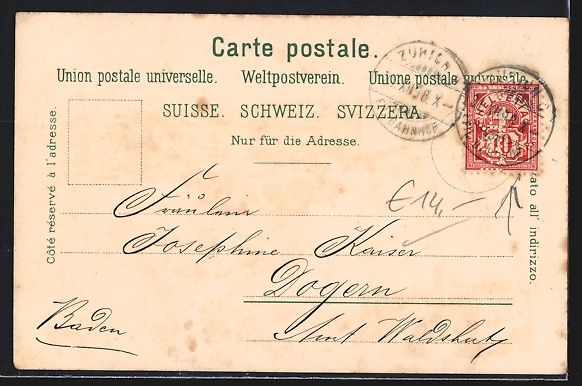 Carte postale.
Union postale universelle. Weltpostverein. Unione postale universale.
SUISSE. SCHWEIZ. SVIZZERA.
Nur für die Adresse.
Côté réservé à l'adresse.
ato all' indirizzo.
ZÜRICH
BAHNHOF
HELVETIA
10
€ 14,-
Fräulein
Josephine Kaiser
Dogern
Amt Waldshut
Baden